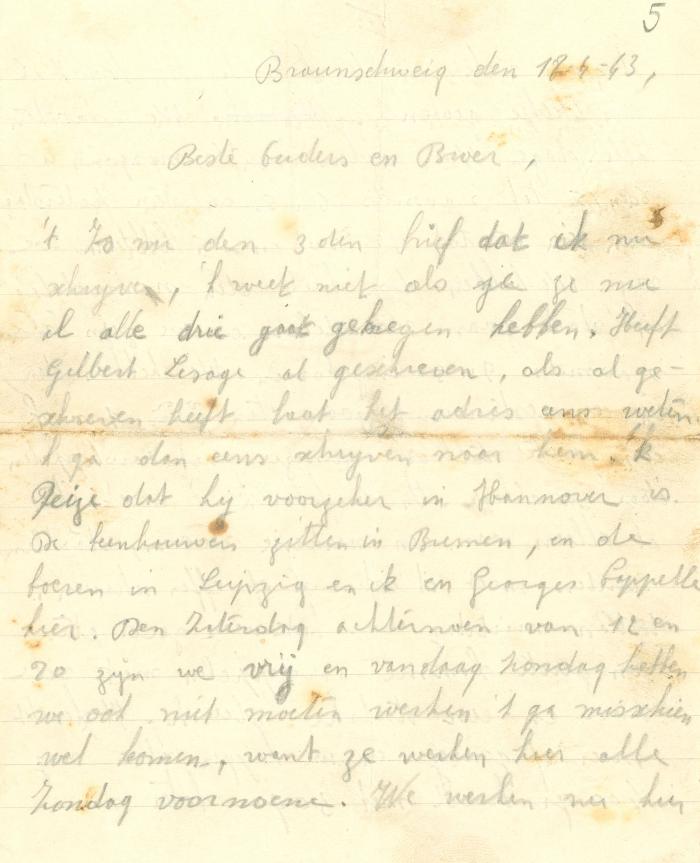 5
Braunschweig den 18-4-43,
Beste Ouders en Broer,
't Zo nu den 3den brief dat ik nu
schryven, 'k weet niet als je ze nu
al alle drie gaat gekregen hebben. Heeft
Gilbert Lesage al geschreven, als al ge-
schreven heeft laat het adres ons weten.
'k ga dan eens schryven naar hem. 'k
Peize dat hij voorzeker in Hannover is.
De beenhouwers zitten in Bremen, en de
boeren in Leipzig en ik en Georges Cappelle
hier. Den Zaterdag achternoen van 12 en
20 zijn we vrij en vandaag Zondag hebben
we ook niet moeten werken 't ga misschien
wel komen, want ze werken hier alle
Zondag voornoene. We werken nu hier